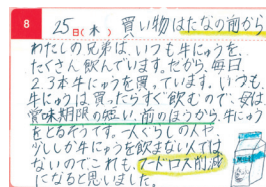 8 25日(木) 買い物はたなの前から
わたしの兄弟は、いつも牛にゅうを、
たくさん飲んでいます。だから、毎日
2.3本牛にゅうを買っています。いつも、
牛にゅうは買ったらすぐ飲むので、母は
賞味期限の短い前のほうから、牛にゅう
をとるそうです。一人ぐらしの人や、
少ししか牛にゅうを飲まない人では
ないのでこれも、フードロス削減
になると思いました。